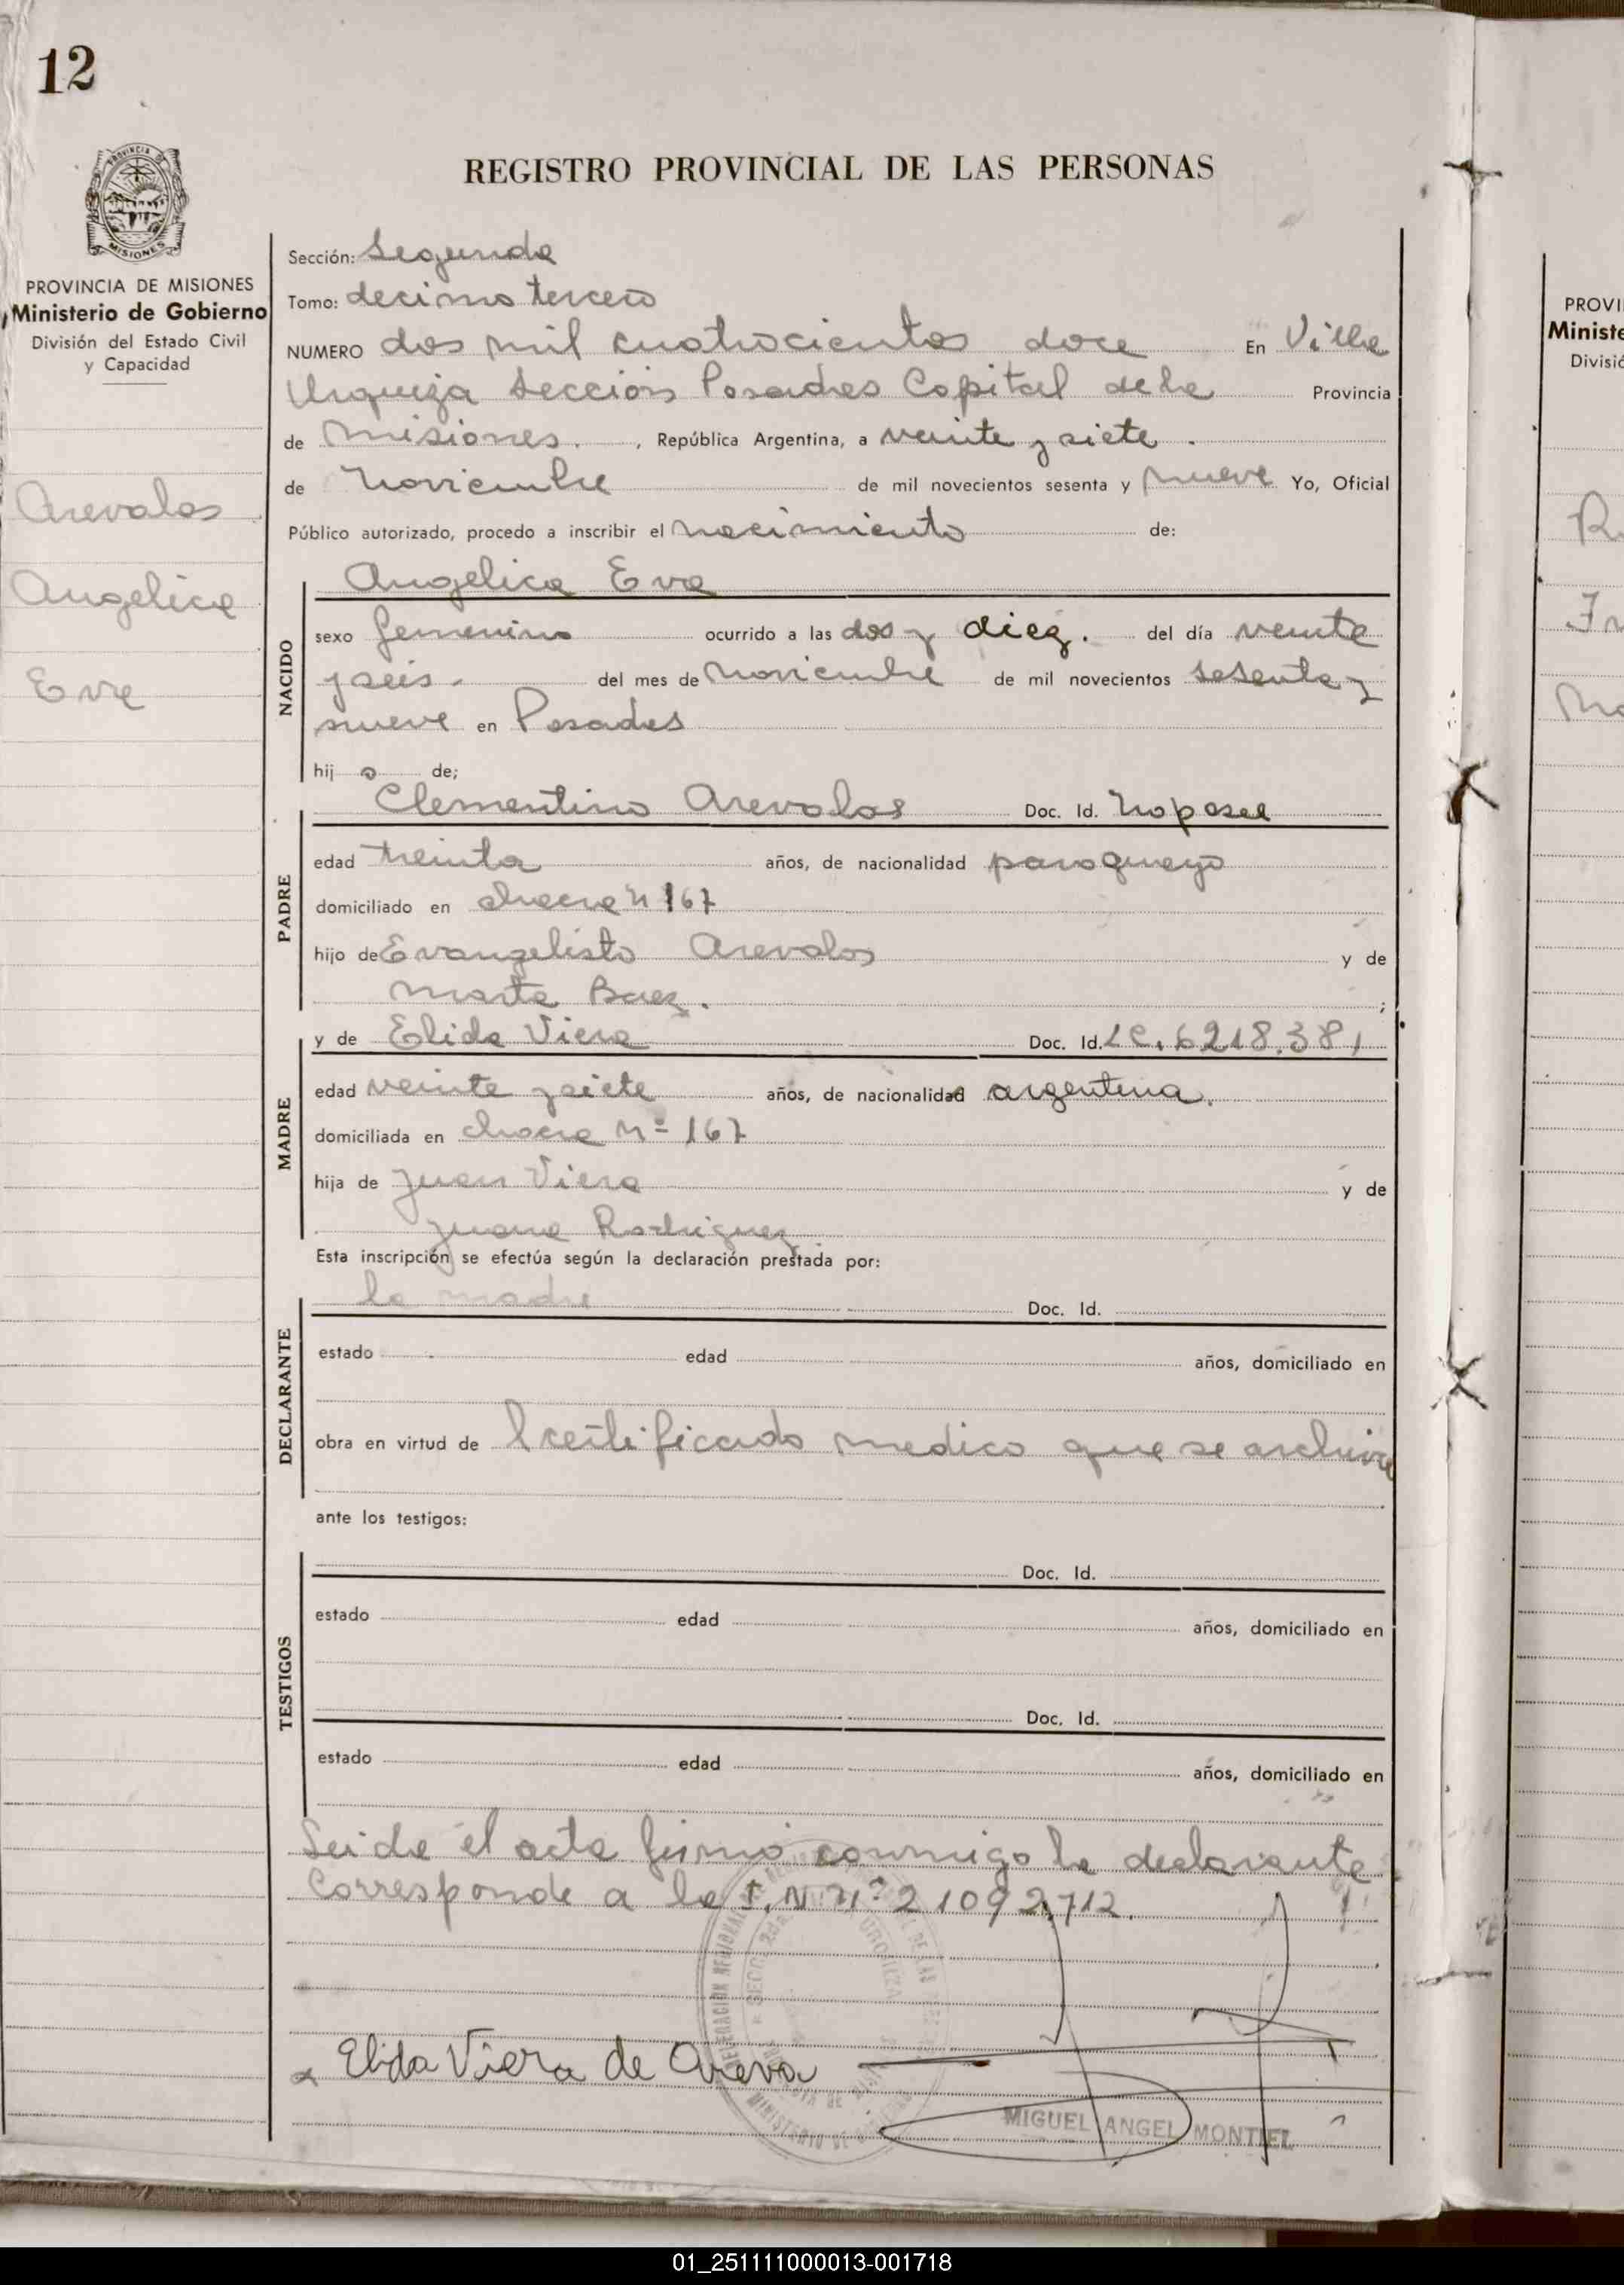 12
PROVINCIA DE
MISIONES
REGISTRO PROVINCIAL DE LAS PERSONAS
PROVINCIA DE MISIONES
Ministerio de Gobierno
División del Estado Civil
y Capacidad
Arevalos
Angelica
Eva
Sección: Segunda
Tomo: decimo tercero
NUMERO dos mil cuatrocientos doce En Villa
Urquiza Sección Posadas Capital de la Provincia
de Misiones. , República Argentina, a veinte y siete.
de Noviembre de mil novecientos sesenta y nueve Yo, Oficial
Público autorizado, procedo a inscribir el nacimiento de:
NACIDO
Angelica Eva
sexo femenino ocurrido a las dos y diez. del día veinte
y seis. del mes de noviembre de mil novecientos sesenta y
nueve en Posadas
hij a de;
PADRE
Clementino Arevalos Doc. Id. No posee
edad treinta años, de nacionalidad paraguayo
domiciliado en chacra n 167
hijo de Evangelisto Arevalos y de
Marta Baez. ;
MADRE
y de Elida Viera Doc. Id. LC. 6218.381
edad veinte y siete años, de nacionalidad argentina.
domiciliada en chacra Nº 167
hija de Juan Viera y de
Juana Rodriguez
Esta inscripción se efectúa según la declaración prestada por:
DECLARANTE
la madre Doc. Id.
estado edad años, domiciliado en
obra en virtud de certificado medico que se archiva
ante los testigos:
TESTIGOS
Doc. Id.
estado edad años, domiciliado en
Doc. Id.
estado edad años, domiciliado en
Leida el acta firmó conmigo la declarante
Corresponde a la I. N nº 21092,712.
Elida Viera de Areva
MIGUEL ANGEL MONTIEL
PROVI
Ministe
Divisió
01_251111000013-001718